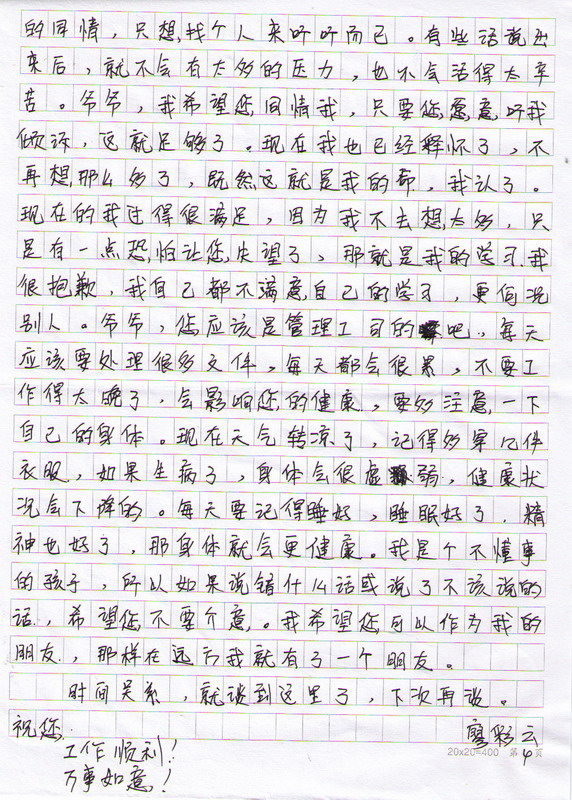 的同情，只想找个人来听听而已。有些话说出
来后，就不会有太多的压力，也不会活得太辛
苦。爷爷，我希望您同情我，只要您愿意听我
倾诉，这就足够了。现在我也已经释怀了，不
再想那么多了，既然这就是我的命，我认了。
现在的我过得很满足，因为我不去想太多，只
是有一点恐怕让您失望了，那就是我的学习。我
很抱歉，我自己都不满意自己的学习，更何况
别人。爷爷，您应该是管理工司的吧，每天
应该要处理很多文件，每天都会很累，不要工
作得太晚了，会影响您的健康，要多注意一下
自己的身体。现在天气转凉了，记得多穿几件
衣服，如果生病了，身体会很虚弱，健康状
况会下降的。每天要记得睡好，睡眠好了，精
神也好了，那身体就会更健康。我是个不懂事
的孩子，所以如果说错什么话或说了不该说的
话，希望您不要介意。我希望您可以作为我的
朋友，那样在远方我就有了一个朋友。
时间关系，就谈到这里了，下次再谈。
祝您 廖彩云
工作顺利！ 20x20=400 第4页
万事如意！